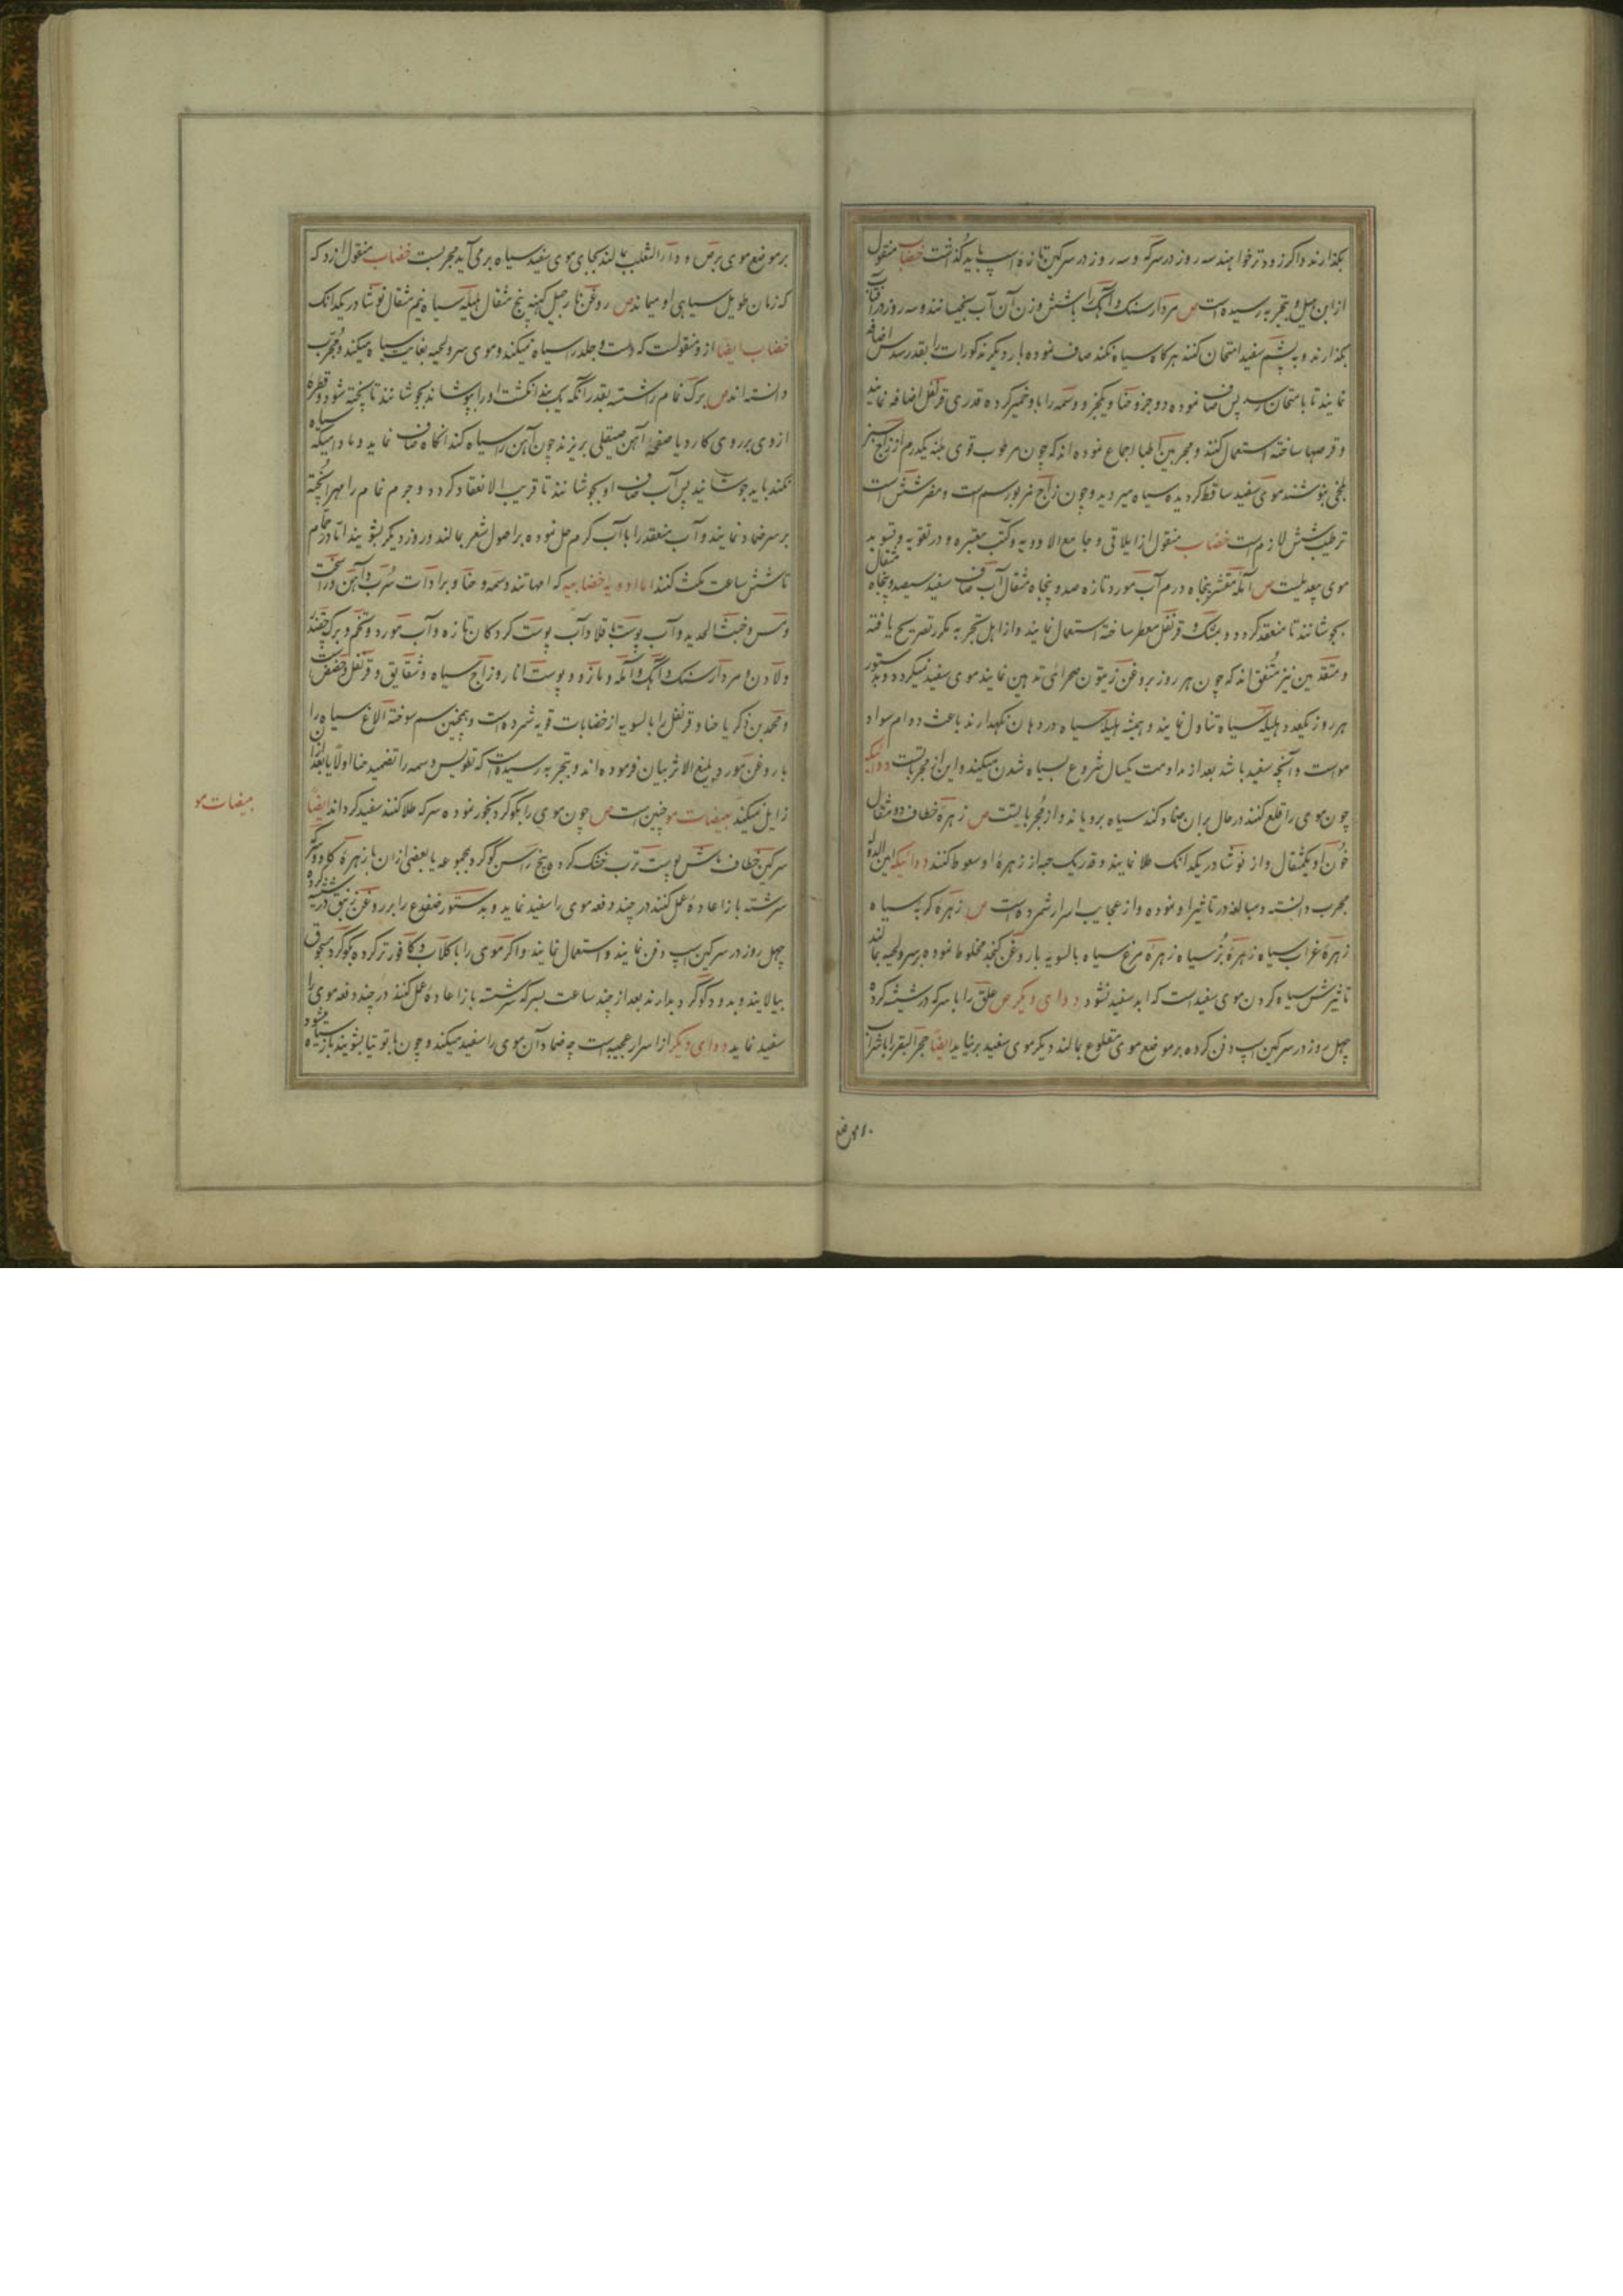 بگذارند و اگر زودتر خواهند سه روز در سرکه و سه روز در سرکین تازه اسپ باید گذاشت خضاب منقول
از ابن میل و بتجربه رسیده است ص مردارسنک و آهک را باشش وزن آن آب بخیسانند و سه روز در آفتاب
بگذارند و به پشم سفید امتحان کنند هرگاه سیاه نکند صاف نموده بار دیگر مذکورات را بقدر سدس اضافه
نمایند تا بامتحان رسد پس صاف نموده دو جزو حنا و یکجزو وسمه را با و خمیر کرده قدری قرنفل اضافه نمایند
و قرصها ساخته استعمال کنند و مجربین اطبا اجماع نموده اند که چون مرطوب قوی بنیه یکدرم از زاج سبز
بلخی بنوشند موی سفید ساقط کردیده سیاه میروید و چون زاج مزبور سم است و مضر شش است
ترطیب شش لازم است خضاب منقول از ایلاقی و جامع الادویه و کتب معتبره و در تقویه و تسوید
موی بعدیلست ص آمله مقشر پنجاه درم آب مورد تازه صد و پنجاه مثقال آب صاف سفید سیصد و پنجاه مثقال
بجوشانند تا منعقد کردد و بمشک و قرنفل معطر ساخته استعمال نمایند و از اهل تجربه مکرر تصریح یافته
و متقدمین نیز متفق اند که چون هر روز بروغن زیتون صحرائی تدهین نمایند موی سفید نمیکردد و بدستور
هر روز یکعدد هلیله سیاه تناول نمایند و همیشه هلیله سیاه در دهان نکهدارند باعث دوام سواد
مو است و آنچه سفید باشد بعد از مداومت یکسال شروع بسیاه شدن میکند و این از مجرباتست دوائیکه
چون موی را قلع کنند در حال بر ان ضماد کند سیاه برویاند و از مجرباتست ص زهره خطاف دو مثقال
خون او یکمثقال و از نوشادر یکدانک طلا نمایند و قدر یک حبه از زهره او سعوط کنند دوائیکه ابن الدوله
مجرب دانسته و مبالغه در تاثیر او نموده و از عجایب اسرار شمرده است ص زهره کربه سیاه
زهره غراب سیاه زهره بز سیاه زهره مرغ سیاه بالسویه با روغن کنجد مخلوط نموده بر سر و لحیه بمالند
تاثیرش سیاه کردن موی سفید است که ابد سفید نشود دوای دیگر ص علق را با سرکه در شیشه کرده
چهل روز در سرکین اسپ دفن کرده بر موضع موی مقلوع بمالند دیگر موی سفید بر نیاید ایضا حجر البقر را باشراب
بر موضع
بر موضع موی برص و داء الثعلب بمالند بجای موی سفید سیاه بر می آید مجربست خضاب منقول از او که
که زمان طویل سیاهی او میماند ص روغن نارجیل کهنه پنج مثقال هلیله سیاه نیم مثقال نوشادر یکدانک
خضاب ایضا از و منقولست که دست و جلد را سیاه نمیکند و موی سر و لحیه بغایت سیاه میکند و مجرب
دانسته اند ص برک نمام را شسته بقدر آنکه یک بند انکشت او را بپوشاند بجوشانند تا پخته شود و قطره
از وی بر روی کارد یا صفحه آهن صیقلی بریزند چون آهن را سیاه کند انکاه صاف نماید و مادامیکه سیاه
نکند باید جوشانید پس آب صاف او بجوشانند تا قریب الانعقاد کردد و جرم نمام را مهرا پخته
بر سر ضماد نمایند و آب منعقد را با آب گرم حل نموده بر اصول شعر بمالند و روز دیکر بشویند اما در حمام
تا شش ساعت مکث کنند اما ادویه خضابیه که امهاتند وسمه و حنا و برادات سرب و آهن و راسخت
و مس و خبث الحدید و آب پوست باقلا و آب پوست کردکان تازه و آب مورد و تخم و برک چغندر
و لادن و مردارسنک و آهک و آمله و مازو و پوست انار و زاج سیاه و شقایق و قرنفل و حضض است
و محمد بن زکریا حنا و قرنفل را بالسویه از خضابات قویه شمرده است و همچنین سم سوخته الاغ سیاه را
با روغن مورد بلیغ الاثر بیان فرموده اند و بتجربه رسیده است که تقویس وسمه را تضمید حنا اولا یا بعد از ان
زایل نمیکند مبیضات مو چنین است ص چون موی را بگوگرد بخور نموده سرکه طلا کنند سفید کرداند ایضا
سرکین خطاف ماش پوست ترب خشک کرده بیخ راسن گوگرد مجموعه یا بعضی از ان با زهره کاو و سرکه
سرشته باز اعاده عمل کنند در چند دفعه موی را سفید نماید و بدستور ضفدع را بر روغن زنبق در شیشه کرده
چهل روز در سرکین اسپ دفن نمایند و استعمال نمایند و اگر موی را با گلاب و کافور تر کرده بگوگرد مسحوق
بیالایند و بدود گوگرد بدارند بعد از چند ساعت بسرکه شسته باز اعاده عمل کنند در چند دفعه موی را
سفید نماید دوای دیگر از اسرار عجیبه است چه ضماد آن موی را سفید میکند و چون با توتیا بشویند باز سیاه میشود
مبیضات مو